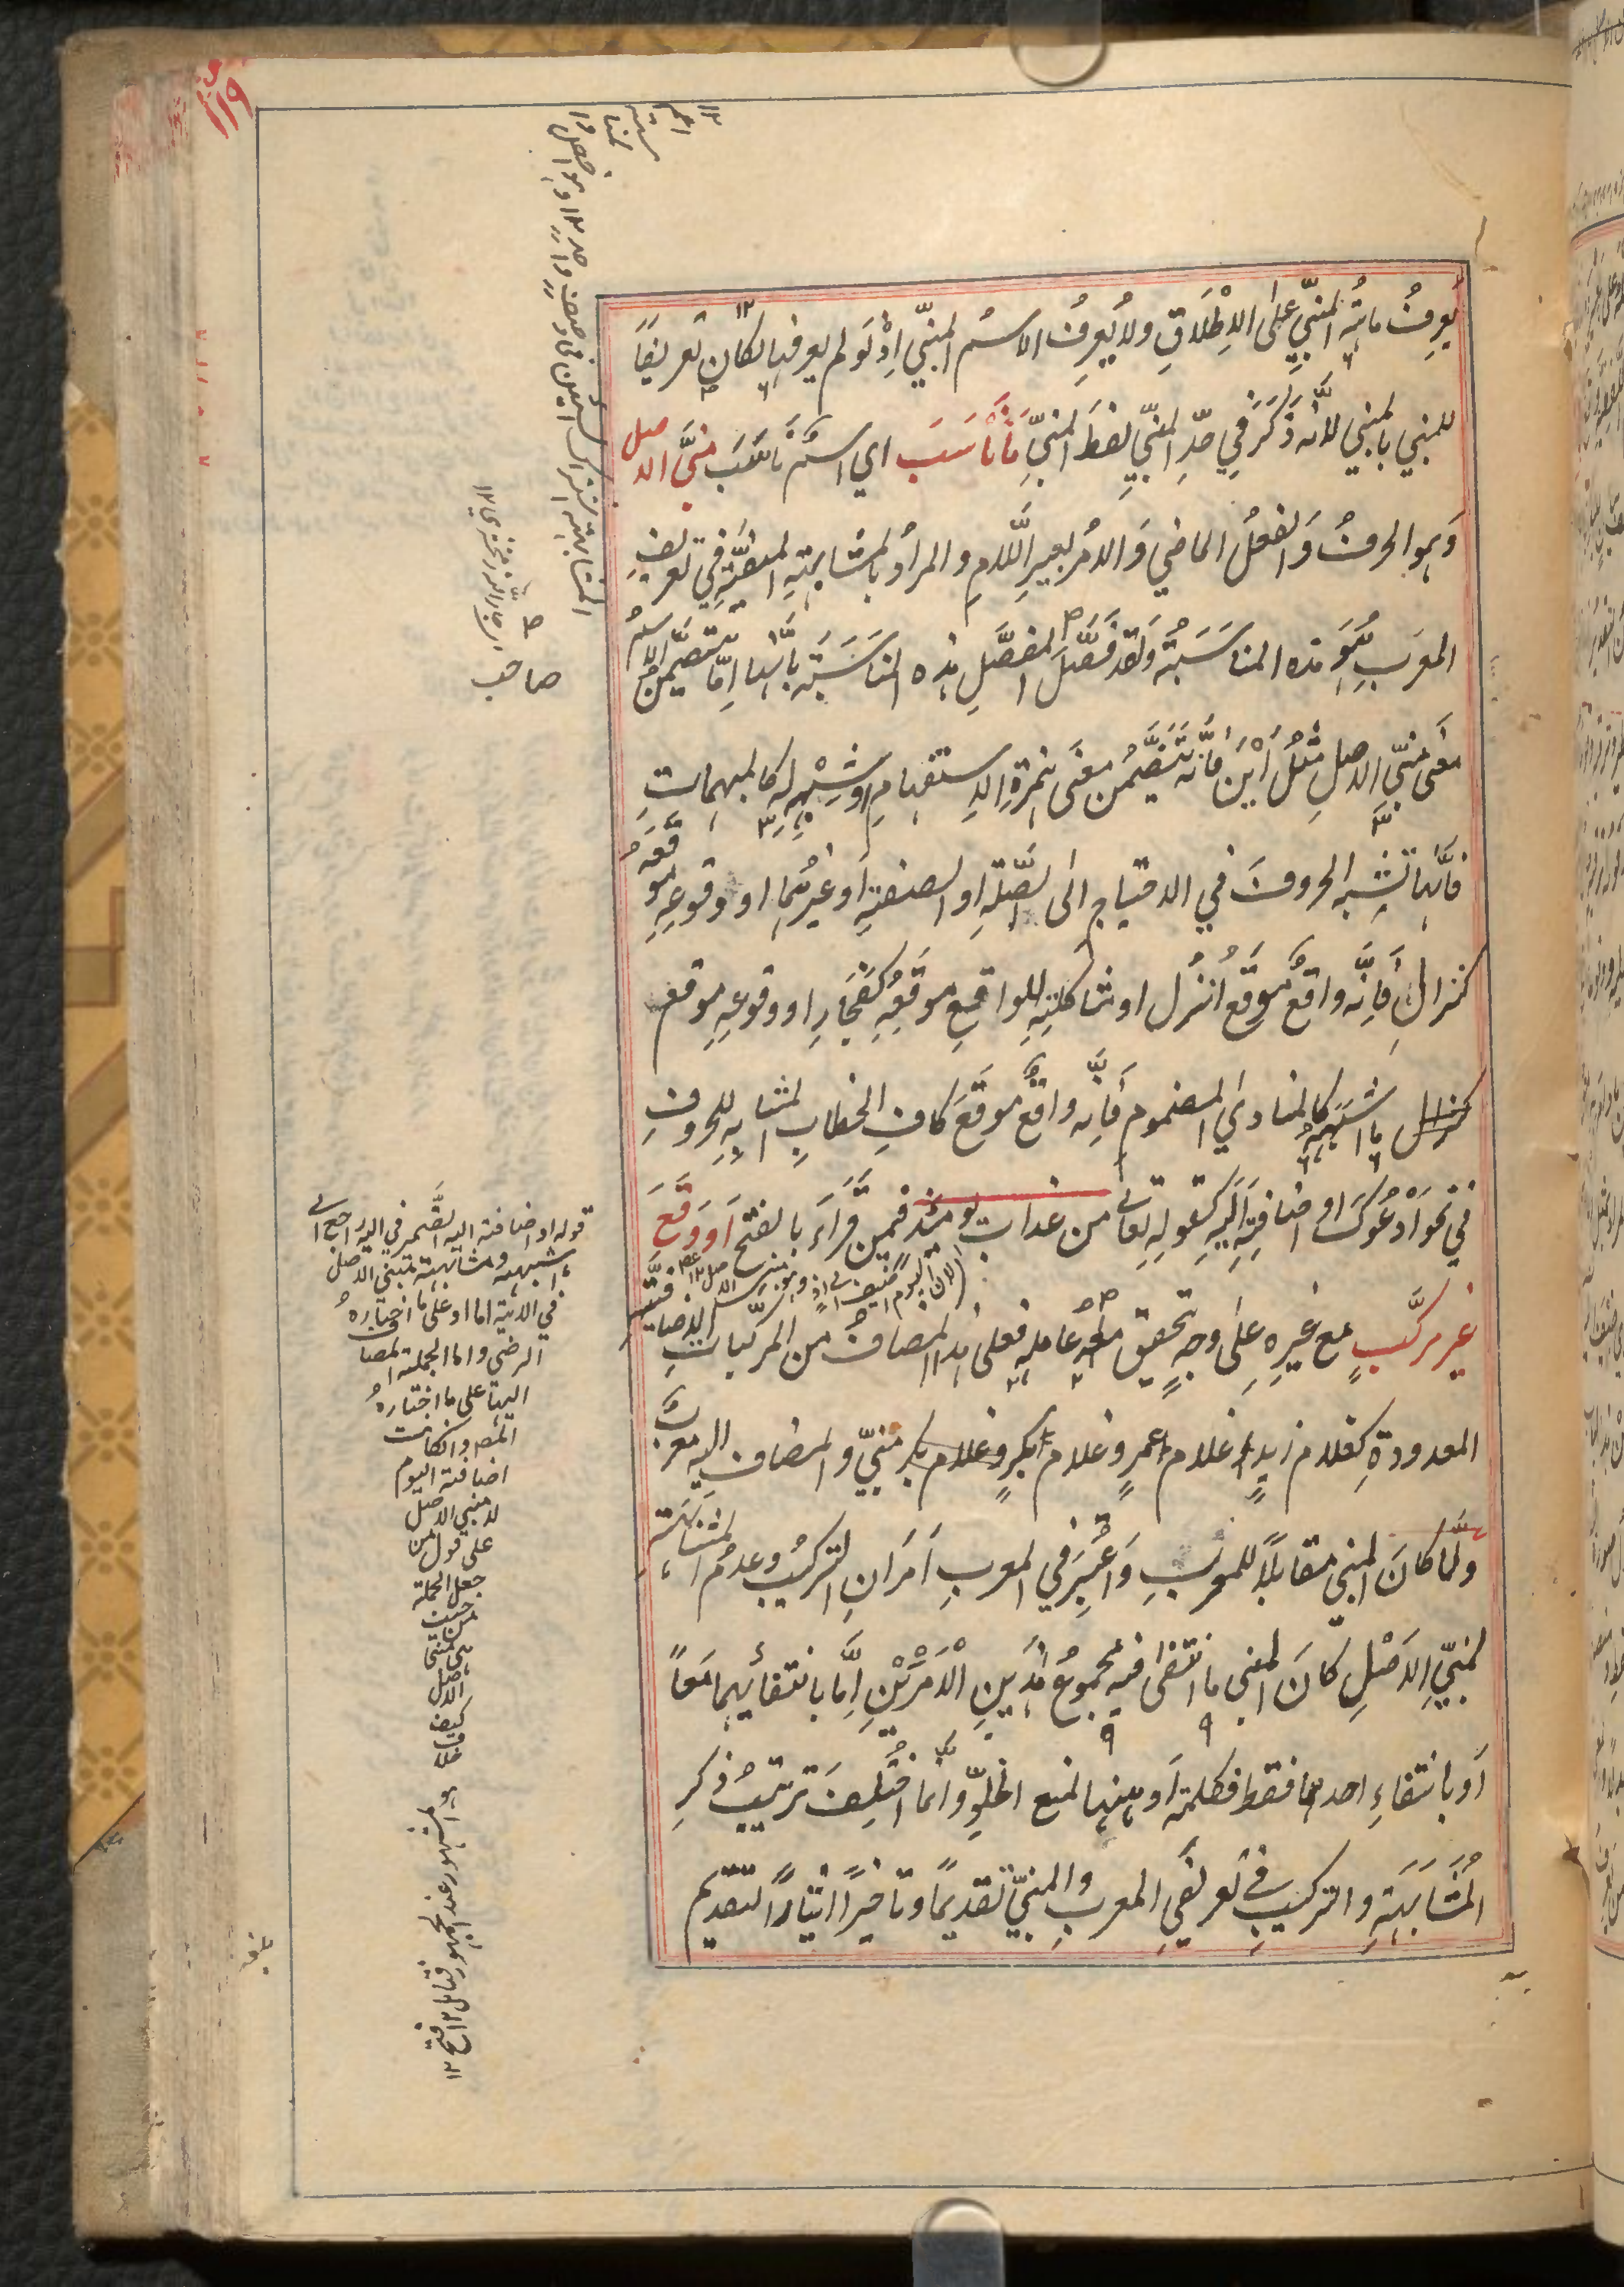 ١١٩
يعرف ماهية المبنيّ على الاطلاق ولا يعرف الاسم المبنيّ اذ لو لم يعرفها لكان تعريفاً
للمبني بالمبني لانّه ذكر في حدّ المبنيّ لفظ المبنيّ ما ناسب اي اسم ناسب مبنيّ الاصل
وهو الحرف والفعل الماضي والامر بغير اللام والمراد بالمشابهة المنفيّة في تعريف
المعرب هو هذه المناسبة ولقد فصّل المفصّل هذه المناسبة بانّها امّا بتضمّن الاسم
معنى مبنيّ الاصل مثل اين فانّه تتضمّن معنى همزة الاستفهام او شبهه له كالمبهمات
فانّها تشبه الحروف في الاحتياج الى الصّلة او الصفة او غيرهما او وقوعه موقعه
كنزال فانّه واقع موقع انزل او مشاكلته للواقع موقعه كفجار او وقوعه موقع
ما اشبهه كالمنادي المضموم فانّه واقع موقع كاف الخطاب المشابه للحروف
في نحو ادعوك او اضافته اليه كقوله تعالى من عذاب يومئذ فيمن قراء بالفتح او وقع
غير مركّب مع غيره على وجه تحقيق معه عامله فعلى هذا المضاف من المركّبات الاضافيّة
المعدودة كغلام زيد غلام عمرو غلام بكر وغلام بكر مبنيّ والمضاف اليه معرب
ولمّا كان المبني مقابلاً للمعرب واعتبر في المعرب امران التركيب وعدم المشابهة
لمبنيّ الاصل كان المبني ما انتفى فيه مجموع هذين الامرين امّا بانتفائهما معاً
او بانتفاء احدهما فقط فكلمة او ههنا لمنع الخلوّ وانّما اختلف ترتيب ذكر
المشابهة والتركيب في تعريفي المعرب والمبنيّ تقديماً وتاخيراً ايثاراً لتقديم
قوله او اضافته اليه الضمير في اليه راجع الى
ما اشبهه ومشابهته بمبني الاصل
في الاية اما او على ما اختاره
الرضي واما الجملة المضا
اليها على ما اختاره
المص وان كانت
اضافة اليوم
لا مبني الاصل
على قول من
جعل الجملة
من حيث
هي مبني
الاصل
والمشهور عند الجمهور فتامل ١٢ فتح ١٢
صاحب